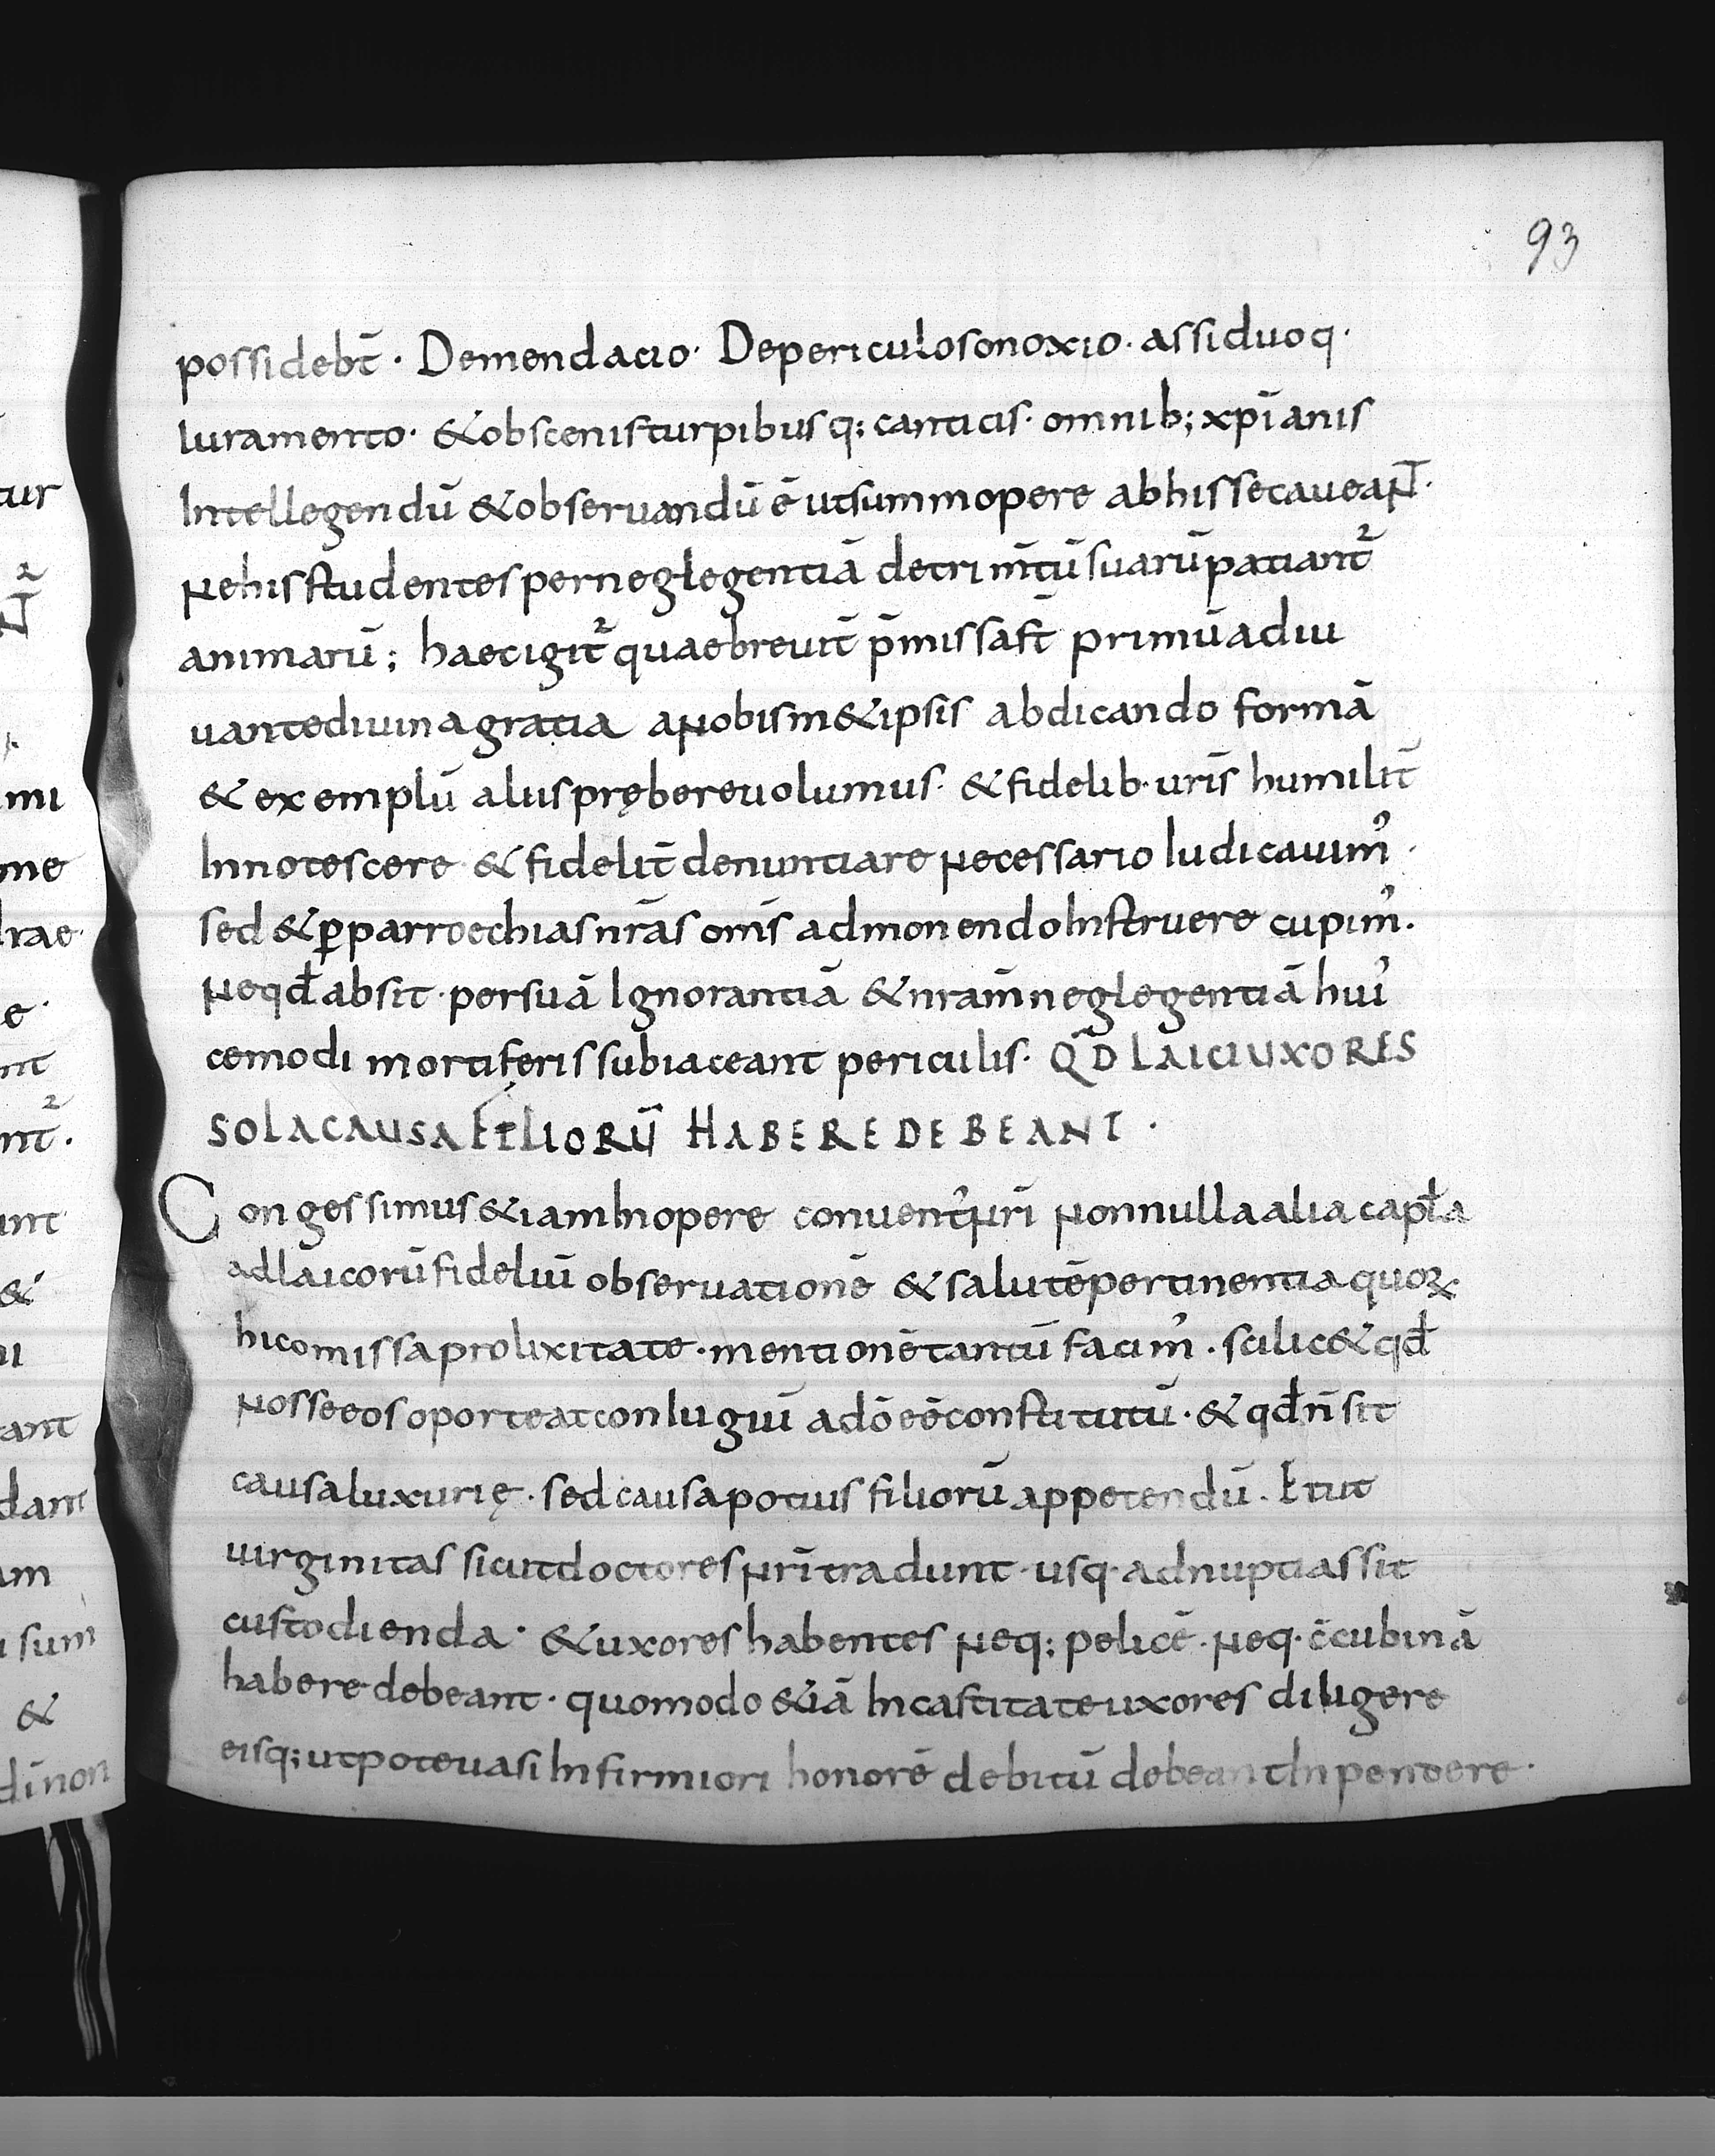 93
possidebt̄ · De mendacio · De periculoso noxio · assiduoq ·
Iuramento · & obscenis turpibusq; canticis · omnib; xp̄ianis
Intellegendū & observandū ē ut summopere ab his se caveaNT̄ ·
Ne his studentes per neglegentiā detrim̄tū suarū patiant̄²
animarū ; haec igit̄² quae brevit̄ p̄missa st̄ primū adiu
vante divina gratia a Nobis m&ipsis abdicando formā
& exemplū aliis prębere volumus · & fidelib · vris̄ humilit̄
Innotescere & fidelit̄ denuntiare Necessario Iudicavim᾿ ·
sed & ꝑ parroechias nrās om̄s admonendo Instruere cupim᾿ ·
Ne qđ absit · per suā Ignorantiā & nrām neglegentiā hui᾿
cemodi mortiferis subiaceant periculis · QD̄ LAICI UXORES
SOLA CAUSA FILIORŪ HABERE DEBEANT ·
Congessimus & iam In opere convent᾿ Nrī Nonnulla alia capła
ad laicorū fideliū observationē & salutē pertinentia quoꝝ
hic omissa prolixitate · mentionē tantū facim᾿ · scilic& qđ
Nosse eos oporteat conIugiū a dō eē constitutū · & qđ n̄ sit
causa luxurię · sed causa potius filiorū appetendū · Et ut
virginitas sicut doctores Nrī tradunt · usq · ad nuptias sit
custodienda · & uxores habentes Neq; pelicē · Neq · c̄cubinā
habere debeant · quomodo &iā In castitate uxores diligere
eisq; utpote vasi Infirmiori honorē debitū debeant Inpendere ·